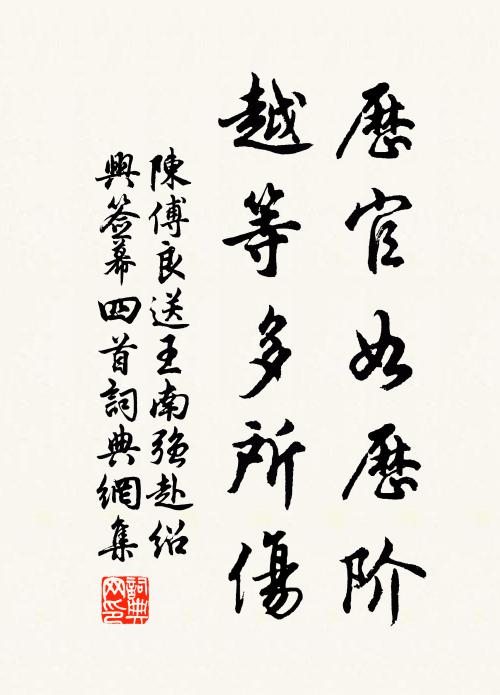 歷官如歷阶
越等多所傷
陳傅良送王南強赴紹
興簽幕四首詞典網集
詞典網印